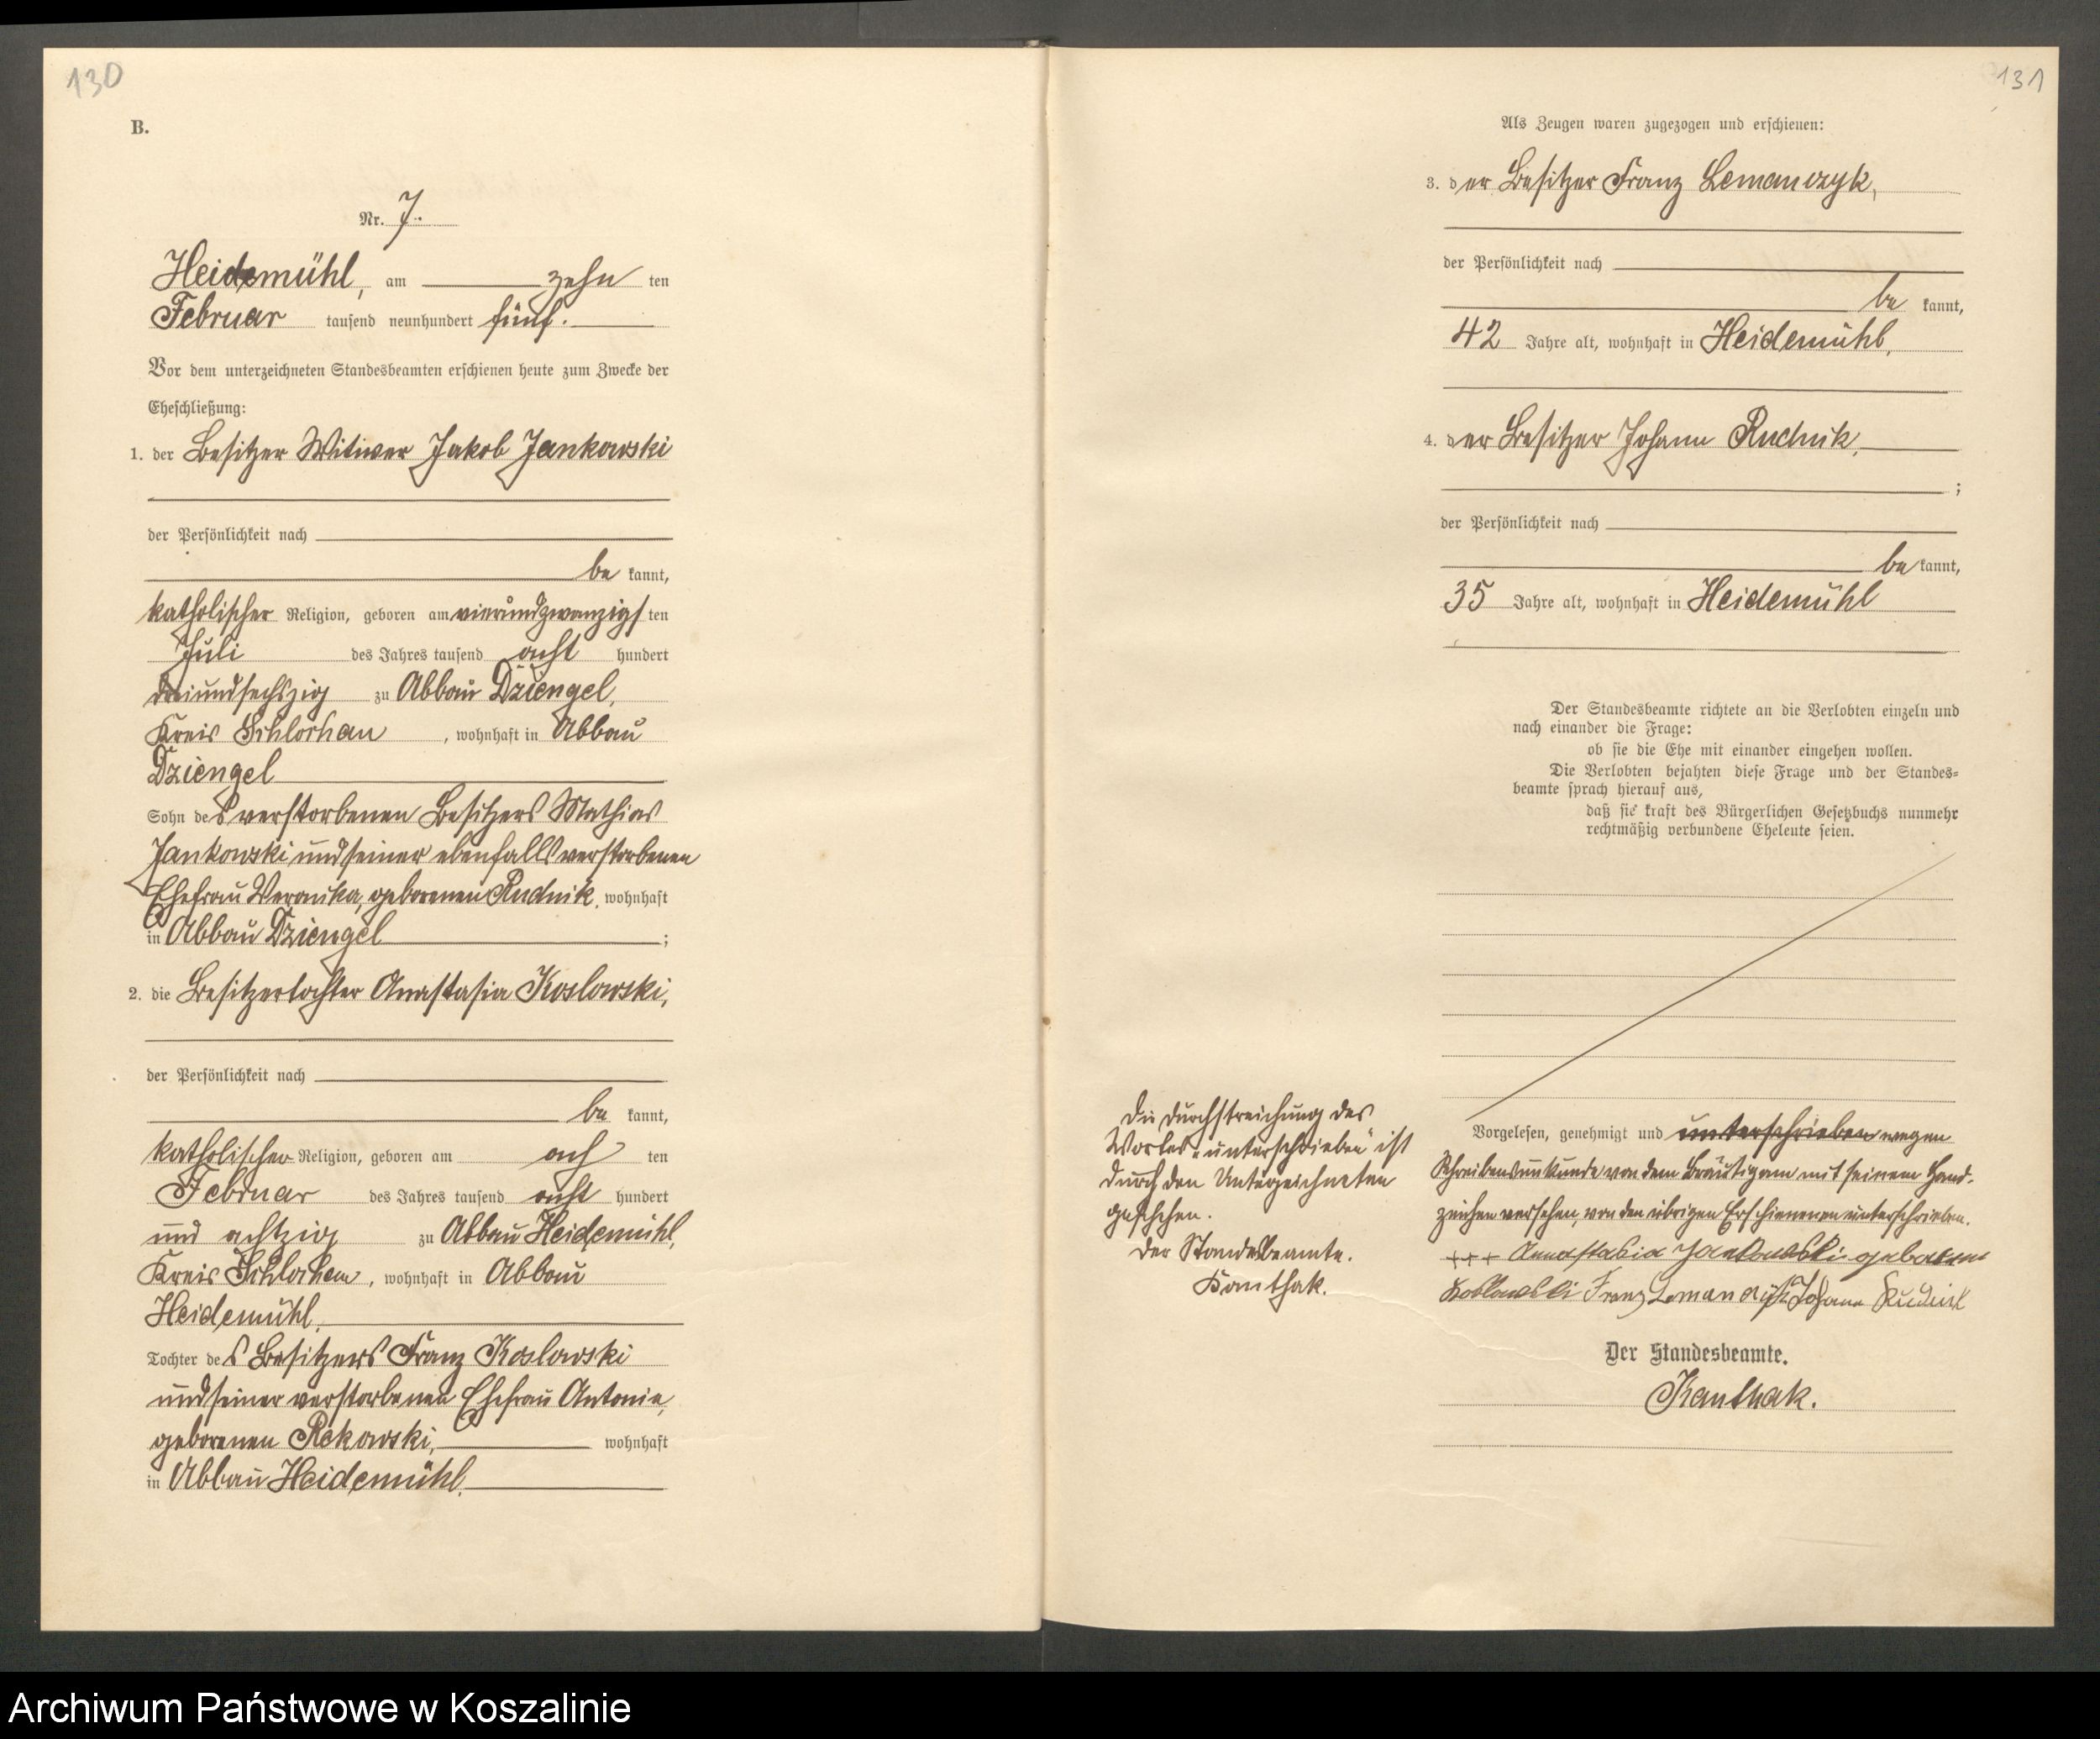 130
B.
Nr. 7.
Heidemühl, am zehn ten
Februar tausend neunhundert fünf.
Vor dem unterzeichneten Standesbeamten erschienen heute zum Zwecke der
Eheschließung:
1. der Besitzer Witwer Jakob Jankowski
der Persönlichkeit nach
be kannt,
katholischer Religion, geboren am vierundzwanzigs ten
Juli des Jahres tausend acht hundert
dreiundsechszig zu Abbau Dziengel,
Kreis Schlochau, wohnhaft in Abbau
Dziengel
Sohn des verstorbenen Besitzers Mathias
Jankowski und seiner ebenfalls verstorbenen
Ehefrau Veronika, geborenen Rudnik, wohnhaft
in Abbau Dziengel;
2. die Besitzertochter Anastasia Koslowski,
der Persönlichkeit nach
be kannt,
katholischer Religion, geboren am ach ten
Februar des Jahres tausend acht hundert
und achtzig zu Abbau Heidemühl,
Kreis Schlochau, wohnhaft in Abbau
Heidemühl,
Tochter des Besitzers Franz Koslowski
und seiner verstorbenen Ehefrau Antonie,
geborenen Rekowski, wohnhaft
in Abbau Heidemühl.
131
Als Zeugen waren zugezogen und erschienen:
3. der Besitzer Franz Lemanczyk,
der Persönlichkeit nach
be kannt,
42 Jahre alt, wohnhaft in Heidemühl,
4. der Besitzer Johann Rudnik,
;
der Persönlichkeit nach
be kannt,
35 Jahre alt, wohnhaft in Heidemühl
Der Standesbeamte richtete an die Verlobten einzeln und
nach einander die Frage:
ob sie die Ehe mit einander eingehen wollen.
Die Verlobten bejahten diese Frage und der Standes-
beamte sprach hierauf aus,
daß sie kraft des Bürgerlichen Gesetzbuchs nunmehr
rechtmäßig verbundene Eheleute seien.
Vorgelesen, genehmigt und unterschrieben wegen
Schreibensunkunde von dem Bräutigam mit seinem Hand-
zeichen versehen, von den übrigen Erschienenen unterschrieben.
+++ Anastasia Jankowski geborene
Koslowski Franz Lemanczyk Johann Rudnik
Der Standesbeamte.
Kanthak.
Die Durchstreichung des
Wortes „unterschrieben" ist
durch den Unterzeichneten
geschehen.
Der Standesbeamte.
Kanthak.
Archiwum Państwowe w Koszalinie